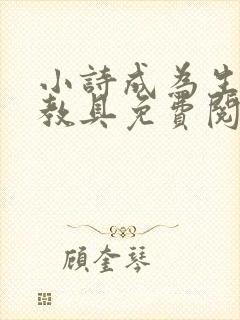 小詩成為生
教具免費閱
顧奎琴